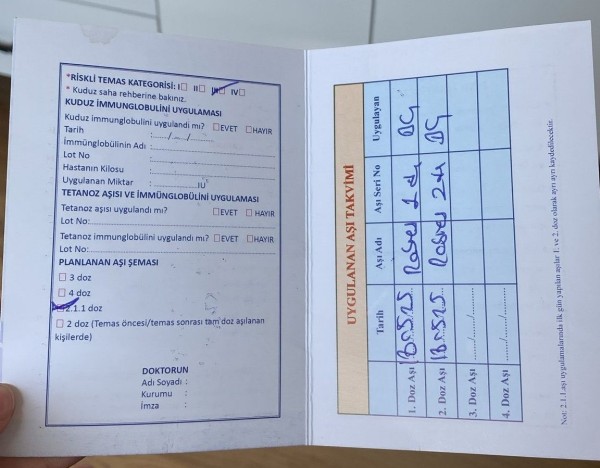 *RİSKLİ TEMAS KATEGORİSİ: I□ II□ III□ IV□
* Kuduz saha rehberine bakınız.
KUDUZ İMMUNGLOBULİNİ UYGULAMASI
Kuduz immunglobulini uygulandı mı? □EVET □HAYIR
Tarih :....../....../......
İmmünglobülinin Adı :
Lot No :
Hastanın Kilosu :
Uygulanan Miktar :..............IU
TETANOZ AŞISI VE İMMÜNGLOBÜLİNİ UYGULAMASI
Tetanoz aşısı uygulandı mı? □EVET □HAYIR
Lot No:
Tetanoz immunglobulini uygulandı mı? □EVET □HAYIR
Lot No:
PLANLANAN AŞI ŞEMASI
□ 3 doz
□ 4 doz
□ 2.1.1 doz
□ 2 doz (Temas öncesi/temas sonrası tam doz aşılanan
kişilerde)
DOKTORUN
Adı Soyadı :
Kurumu :
İmza :
UYGULANAN AŞI TAKVİMİ
Tarih Aşı Adı Aşı Seri No Uygulayan
1. Doz Aşı
2. Doz Aşı
3. Doz Aşı ....../....../......
4. Doz Aşı ....../....../......
Not: 2.1.1.aşı uygulamalarında ilk gün yapılan aşılar 1. ve 2. doz olarak ayrı ayrı kaydedilecektir.